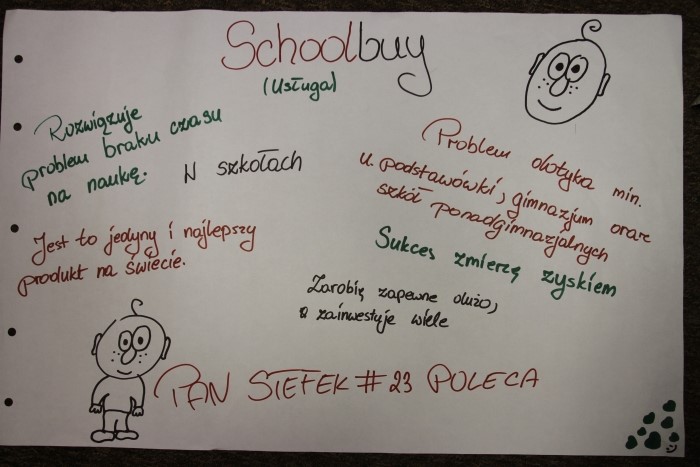 Schoolbuy
(Usługa)
Rozwiązuje
problem braku czasu
na naukę.
W szkołach
Problem dotyka min.
u. podstawówki, gimnazjum oraz
szkół ponadgimnazjalnych
Jest to jedyny i najlepszy
produkt na świecie.
Sukces zmierzę zyskiem
Zarobię zapewne dużo,
zainwestuje wiele
PAN STEFEK #23 POLECA